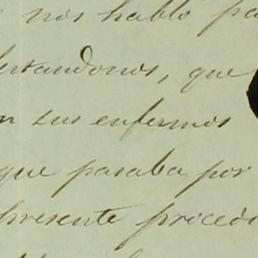 nos hablo pa
ertandonos, que
n sus enfermos
que pasaba por
presente procedi